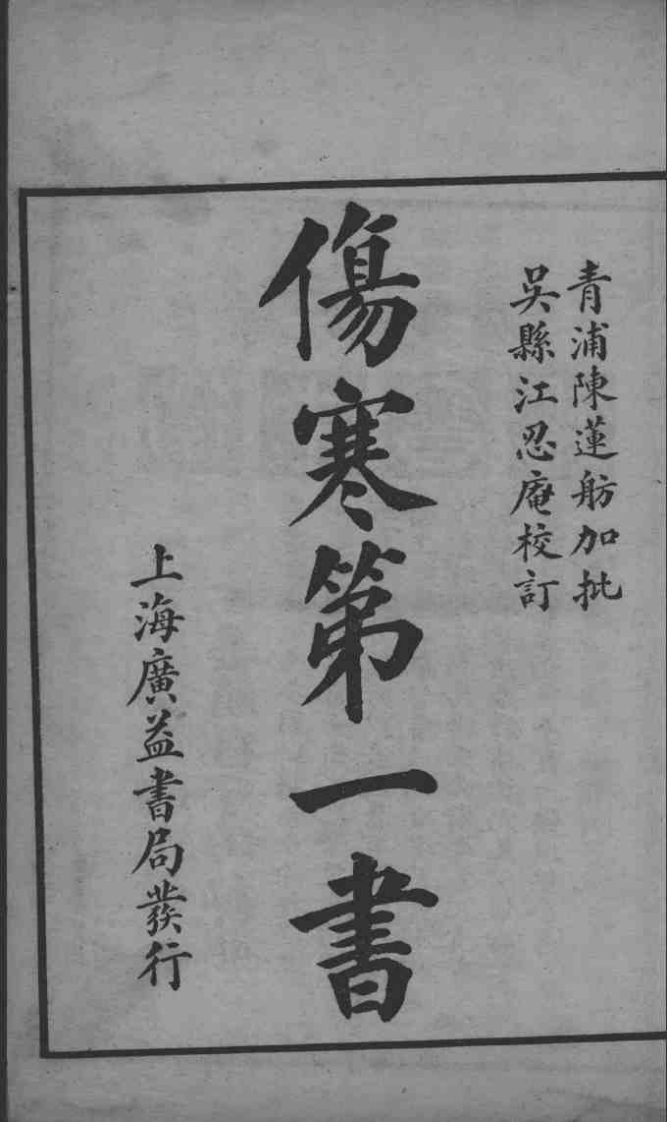 青浦陳蓮舫加批
吳縣江忍庵校訂
傷寒第一書
上海廣益書局發行